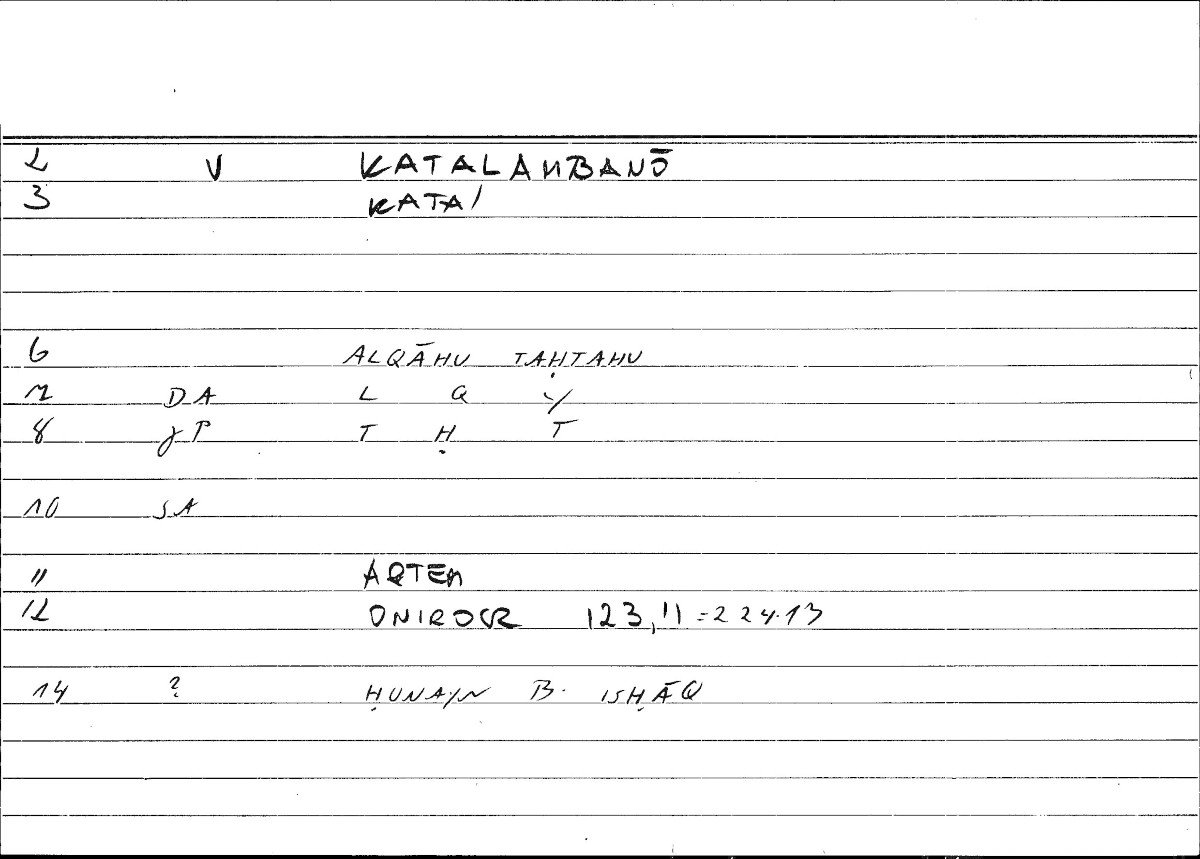 2 V KATALAMBANŌ
3 KATA/
6 ALQĀHU TAḤTAHU
7 DA L Q Y
8 JP T Ḥ T
10 SA
11 ARTEM
12 ONIROCR 123,11 = 224.13
14 ? ḤUNAYN B. ISḤĀQ